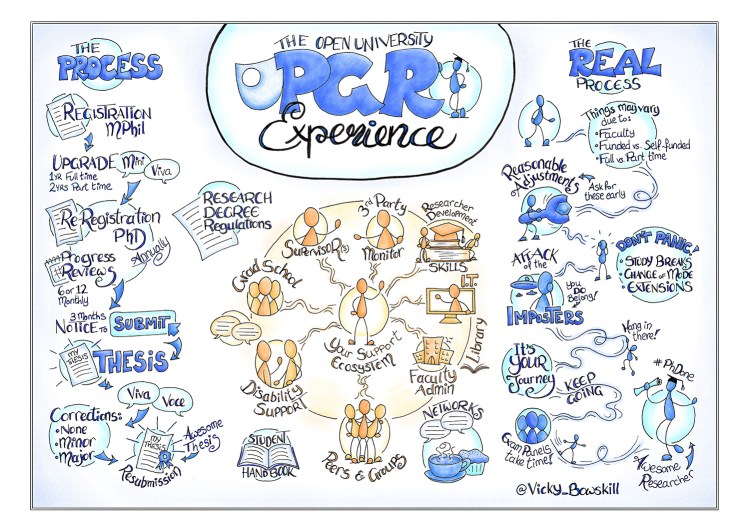 THE OPEN UNIVERSITY
PGR
Experience
THE
PROCESS
REGISTRATION
MPhil
UPGRADE
1YR Full time
2YRS Part time
Mini
Viva
Re-Registration
PhD
Annually
Progress
Reviews
6 or 12
Monthly
3 Months
NOTICE TO
SUBMIT
MY
THESIS
THESIS
Viva
Voce
Corrections:
• None
• Minor
• Major
MY
THESIS
Awesome
Thesis
Resubmission
RESEARCH
DEGREE
Regulations
SUPERVISOR(S)
3rd Party
Monitor
Researcher
Development
SKILLS
Grad School
I.T.
Library
Your Support
Ecosystem
Disability
Support
Faculty
Admin
STUDENT
HANDBOOK
Peers & Groups
NETWORKS
THE
REAL
PROCESS
Things may vary
due to:
• Faculty
• Funded vs. Self-funded
• Full vs. Part time
Reasonable
Adjustments
Ask for
these early
ATTACK
of the
IMPOSTERS
You
DO
Belong!
DON'T PANIC!
• STUDY BREAKS
• CHANGE of MODE
• EXTENSIONS
Hang in
there!
It's
YOUR
Journey
KEEP
GOING
#PhDone
Exam Panels
take time!
Awesome
Researcher
@Vicky_Bowskill